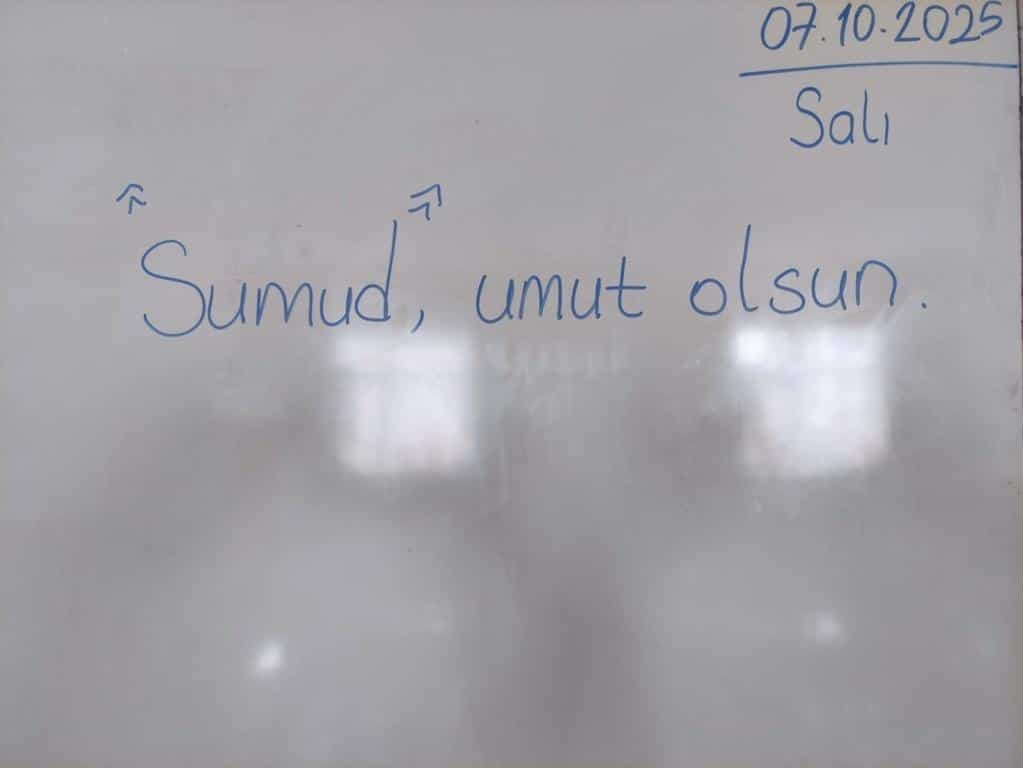 07.10.2025
Salı
"Sumud," umut olsun.